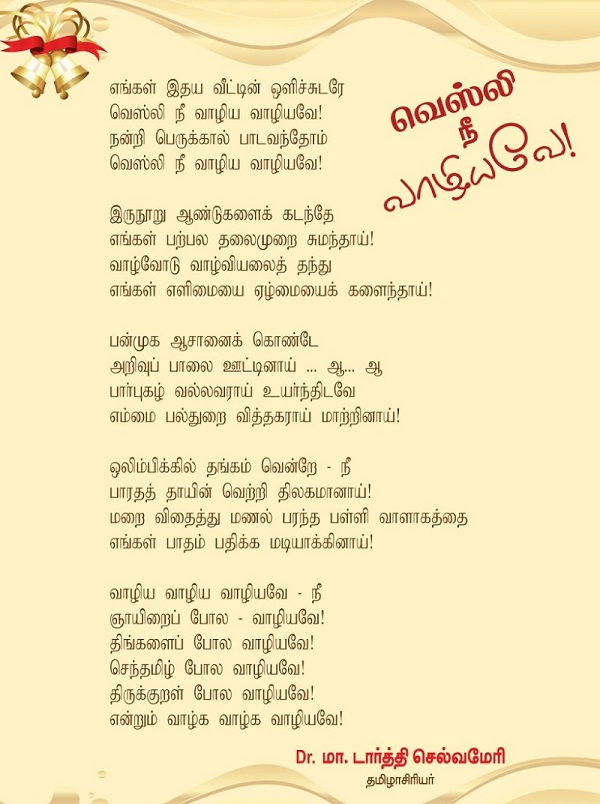 வெஸ்லி
நீ
வாழியவே!
எங்கள் இதய வீட்டின் ஒளிச்சுடரே
வெஸ்லி நீ வாழிய வாழியவே!
நன்றி பெருக்கால் பாடவந்தோம்
வெஸ்லி நீ வாழிய வாழியவே!
இருநூறு ஆண்டுகளைக் கடந்தே
எங்கள் பற்பல தலைமுறை சுமந்தாய்!
வாழ்வோடு வாழ்வியலைத் தந்து
எங்கள் எளிமையை ஏழ்மையைக் களைந்தாய்!
பன்முக ஆசானைக் கொண்டே
அறிவுப் பாலை ஊட்டினாய் ... ஆ... ஆ
பார்புகழ் வல்லவராய் உயர்ந்திடவே
எம்மை பல்துறை வித்தகராய் மாற்றினாய்!
ஒலிம்பிக்கில் தங்கம் வென்றே - நீ
பாரதத் தாயின் வெற்றி திலகமானாய்!
மறை விதைத்து மணல் பரந்த பள்ளி வாளாகத்தை
எங்கள் பாதம் பதிக்க மடியாக்கினாய்!
வாழிய வாழிய வாழியவே - நீ
ஞாயிறைப் போல - வாழியவே!
திங்களைப் போல வாழியவே!
செந்தமிழ் போல வாழியவே!
திருக்குறள் போல வாழியவே!
என்றும் வாழ்க வாழ்க வாழியவே!
Dr. மா. டார்த்தி செல்வமேரி
தமிழாசிரியர்